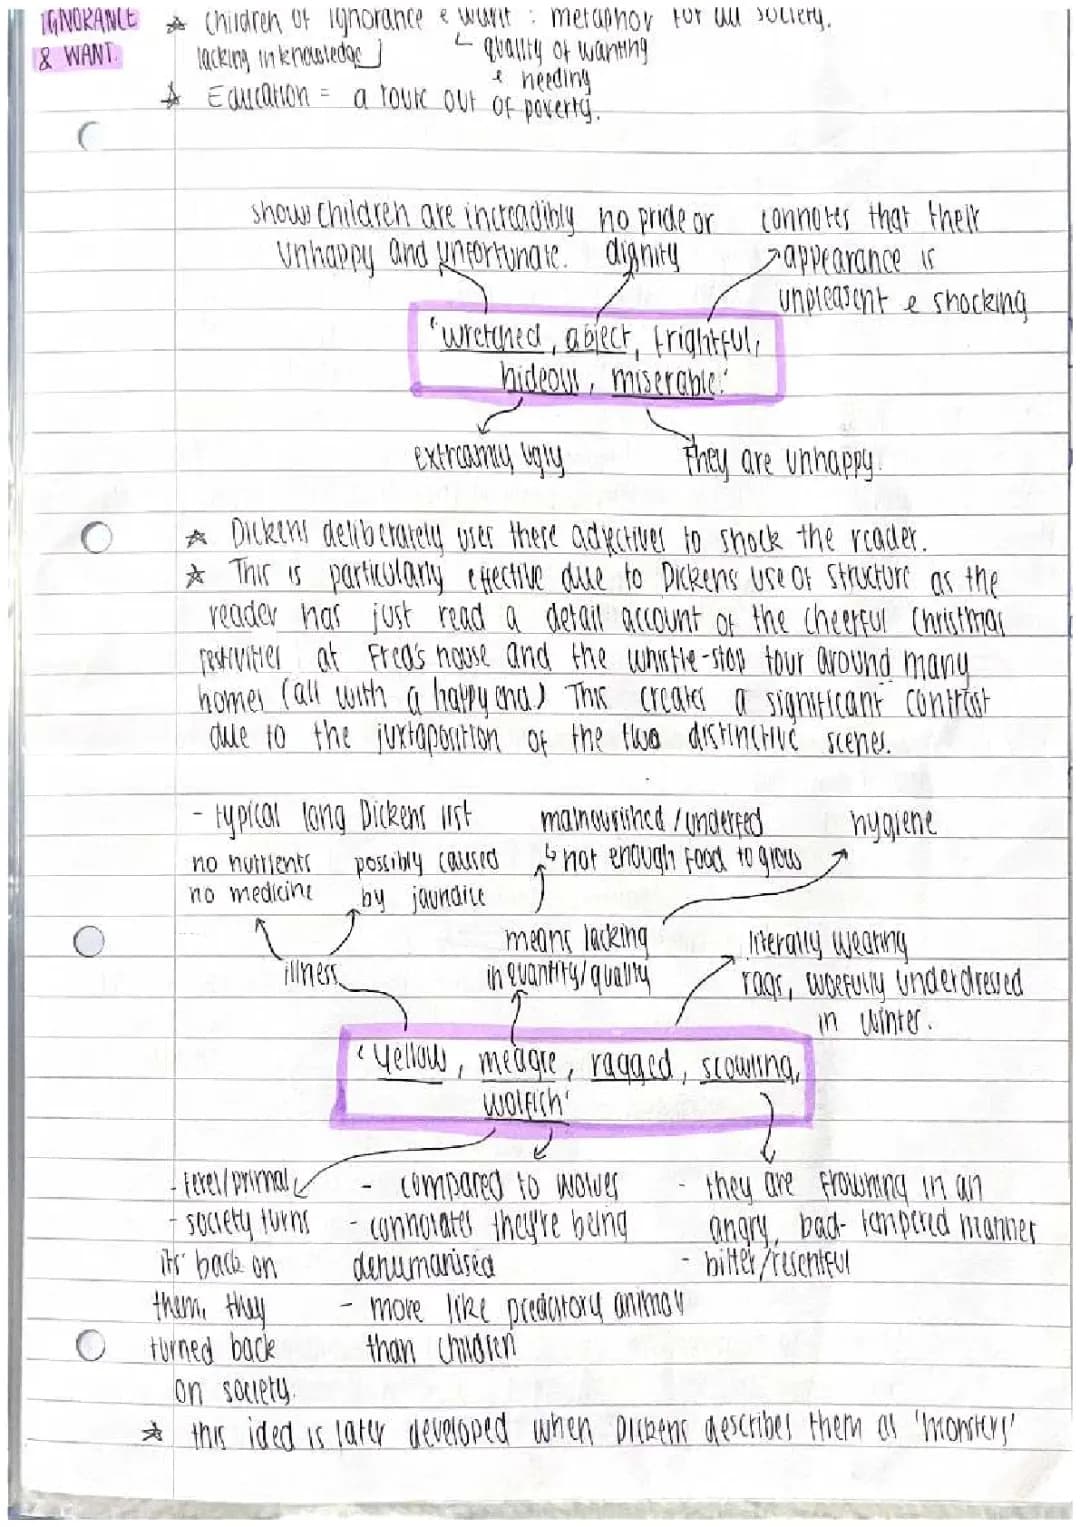 IGNORANCE
& WANT.
☆ children of ignorance & want : metaphor for all society.
lacking in knowledge ↳ quality of wanting
& needing
☆ Education = a route out of poverty.
shows children are increadibly
unhappy and unfortunate.
no pride or
dignity
connotes that their
appearance is
unpleasent & shocking
'wretched, abject, frightful,
hideous, miserable.'
extreamly ugly
They are unhappy.
☆ Dickens deliberately uses these adjectives to shock the reader.
☆ This is particularly effective due to Dickens use of structure as the
reader has just read a detail account of the cheerful Christmas
festivities at Fred's house and the whistle-stop tour around many
homes (all with a happy end.) This creates a significant contrast
due to the juxtaposition of the two distinctive scenes.
- typical long Dickens list
no nutrients
no medicine
possibly caused
by jaundice
malnourished / underfed
↳ not enough food to grow
hygiene
illness
means lacking
in quantity/quality
literally wearing
rags, woefully underdressed
in winter.
'Yellow, meagre, ragged, scowling,
wolfish'
- ferel/primal
- society turns
its back on
them, they
turned back
on society.
- compared to wolves
- connotates they're being
dehumanised
- more like predatory animal
than children
- they are frowning in an
angry, bad-tempered manner
- bitter/resentful
☆ this idea is later developed when Dickens describes them as 'monsters'